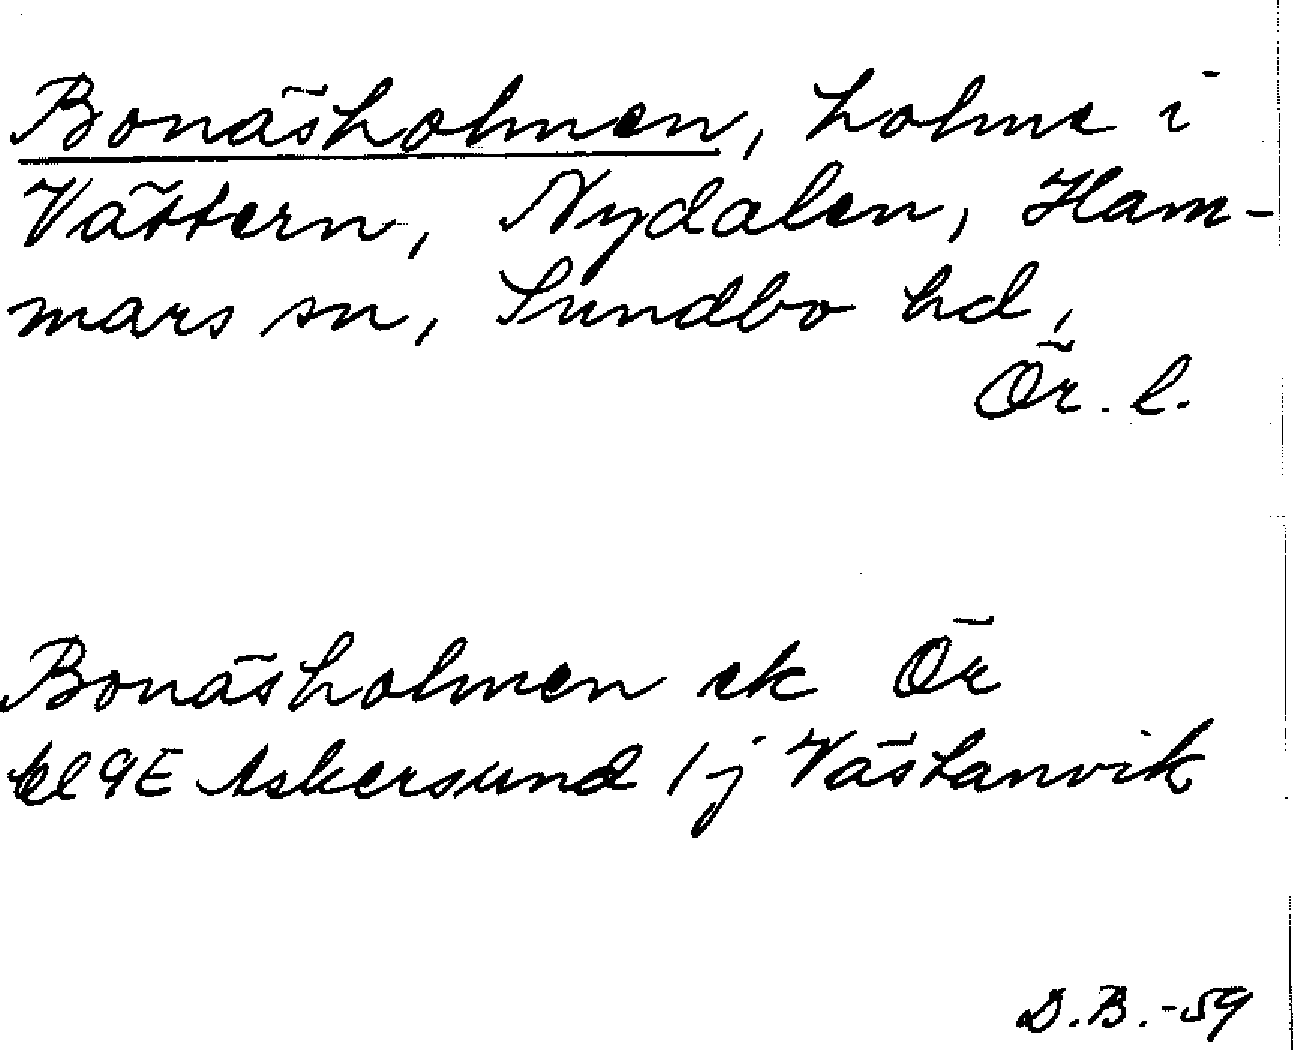 Bonäsholmen, holme i
Vättern, Nydalen, Ham-
mars sn, Sundbo hd,
Ör. l.
Bonäsholmen ek Ör
bl 9E Askersund 1 j Västanvik
D.B.-59